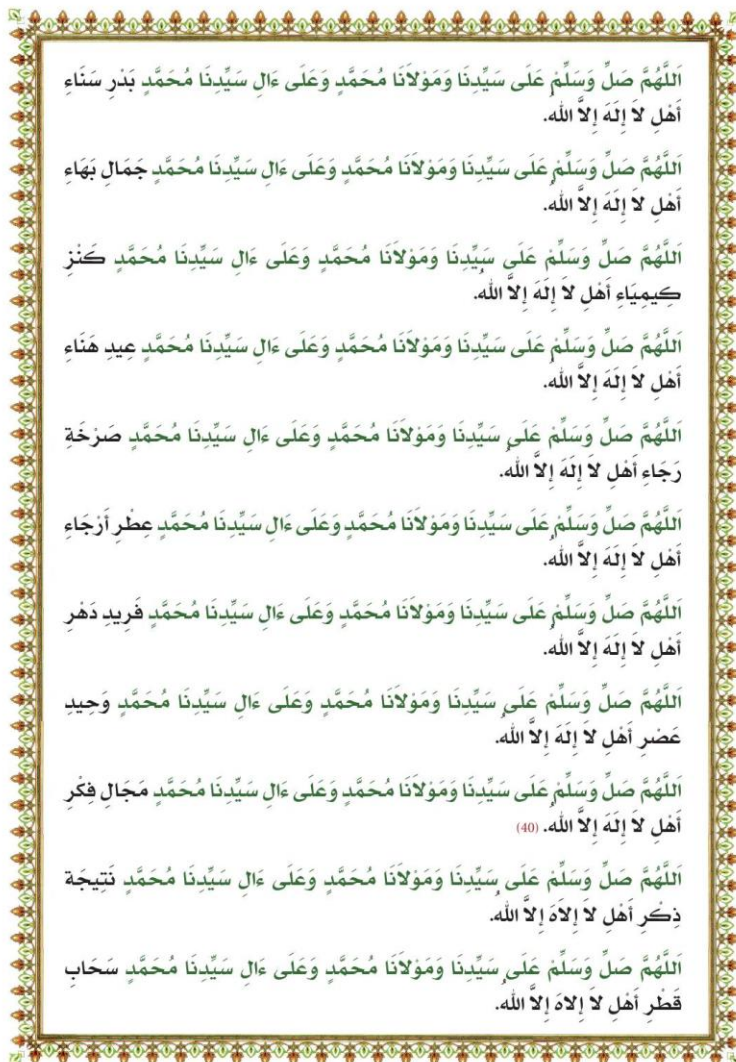 اَللَّهُمَّ صَلِّ وَسَلِّمْ عَلَى سَيِّدِنَا وَمَوْلَانَا مُحَمَّدٍ وَعَلَى ءَالِ سَيِّدِنَا مُحَمَّدٍ بَدْرِ سَنَاءِ
أَهْلِ لَا إِلَهَ إِلاَّ اللهُ.
اَللَّهُمَّ صَلِّ وَسَلِّمْ عَلَى سَيِّدِنَا وَمَوْلَانَا مُحَمَّدٍ وَعَلَى ءَالِ سَيِّدِنَا مُحَمَّدٍ جَمَالِ بَهَاءِ
أَهْلِ لَا إِلَهَ إِلاَّ اللهُ.
اَللَّهُمَّ صَلِّ وَسَلِّمْ عَلَى سَيِّدِنَا وَمَوْلَانَا مُحَمَّدٍ وَعَلَى ءَالِ سَيِّدِنَا مُحَمَّدٍ كَنْزِ
كِيمِيَاءِ أَهْلِ لَا إِلَهَ إِلاَّ اللهُ.
اَللَّهُمَّ صَلِّ وَسَلِّمْ عَلَى سَيِّدِنَا وَمَوْلَانَا مُحَمَّدٍ وَعَلَى ءَالِ سَيِّدِنَا مُحَمَّدٍ عِيدِ هَنَاءِ
أَهْلِ لَا إِلَهَ إِلاَّ اللهُ.
اَللَّهُمَّ صَلِّ وَسَلِّمْ عَلَى سَيِّدِنَا وَمَوْلَانَا مُحَمَّدٍ وَعَلَى ءَالِ سَيِّدِنَا مُحَمَّدٍ صَرْخَةِ
رَجَاءِ أَهْلِ لَا إِلَهَ إِلاَّ اللهُ.
اَللَّهُمَّ صَلِّ وَسَلِّمْ عَلَى سَيِّدِنَا وَمَوْلَانَا مُحَمَّدٍ وَعَلَى ءَالِ سَيِّدِنَا مُحَمَّدٍ عِطْرِ أَرْجَاءِ
أَهْلِ لَا إِلَهَ إِلاَّ اللهُ.
اَللَّهُمَّ صَلِّ وَسَلِّمْ عَلَى سَيِّدِنَا وَمَوْلَانَا مُحَمَّدٍ وَعَلَى ءَالِ سَيِّدِنَا مُحَمَّدٍ فَرِيدِ دَهْرِ
أَهْلِ لَا إِلَهَ إِلاَّ اللهُ.
اَللَّهُمَّ صَلِّ وَسَلِّمْ عَلَى سَيِّدِنَا وَمَوْلَانَا مُحَمَّدٍ وَعَلَى ءَالِ سَيِّدِنَا مُحَمَّدٍ وَحِيدِ
عَصْرِ أَهْلِ لَا إِلَهَ إِلاَّ اللهُ.
اَللَّهُمَّ صَلِّ وَسَلِّمْ عَلَى سَيِّدِنَا وَمَوْلَانَا مُحَمَّدٍ وَعَلَى ءَالِ سَيِّدِنَا مُحَمَّدٍ مَجَالِ فِكْرِ
أَهْلِ لَا إِلَهَ إِلاَّ اللهُ. (40)
اَللَّهُمَّ صَلِّ وَسَلِّمْ عَلَى سَيِّدِنَا وَمَوْلَانَا مُحَمَّدٍ وَعَلَى ءَالِ سَيِّدِنَا مُحَمَّدٍ نَتِيجَة
ذِكْرِ أَهْلِ لَا إِلاَهَ إِلاَّ اللهُ.
اَللَّهُمَّ صَلِّ وَسَلِّمْ عَلَى سَيِّدِنَا وَمَوْلَانَا مُحَمَّدٍ وَعَلَى ءَالِ سَيِّدِنَا مُحَمَّدٍ سَحَابِ
قَطْرِ أَهْلِ لَا إِلاهَ إِلاَّ اللهُ.